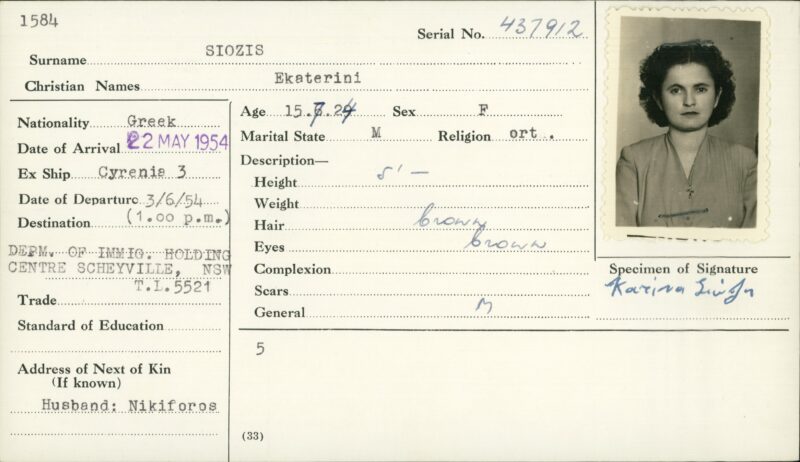 1584
Serial No. 437912
Surname SIOZIS
Christian Names Ekaterini
Nationality Greek
Date of Arrival 22 MAY 1954
Ex Ship Cyrenia 3
Date of Departure 3/6/54
Destination (1.00 p.m.)
DEPM. OF IMMIG. HOLDING
CENTRE SCHEYVILLE, NSW
T.L.5521
Trade
Standard of Education
Address of Next of Kin
(If known)
Husband: Nikiforos
Age 15.7.24 Sex F
Marital State M Religion ort.
Description—
Height 5' —
Weight
Hair brown
Eyes brown
Complexion
Scars
General M
5
(33)
Specimen of Signature